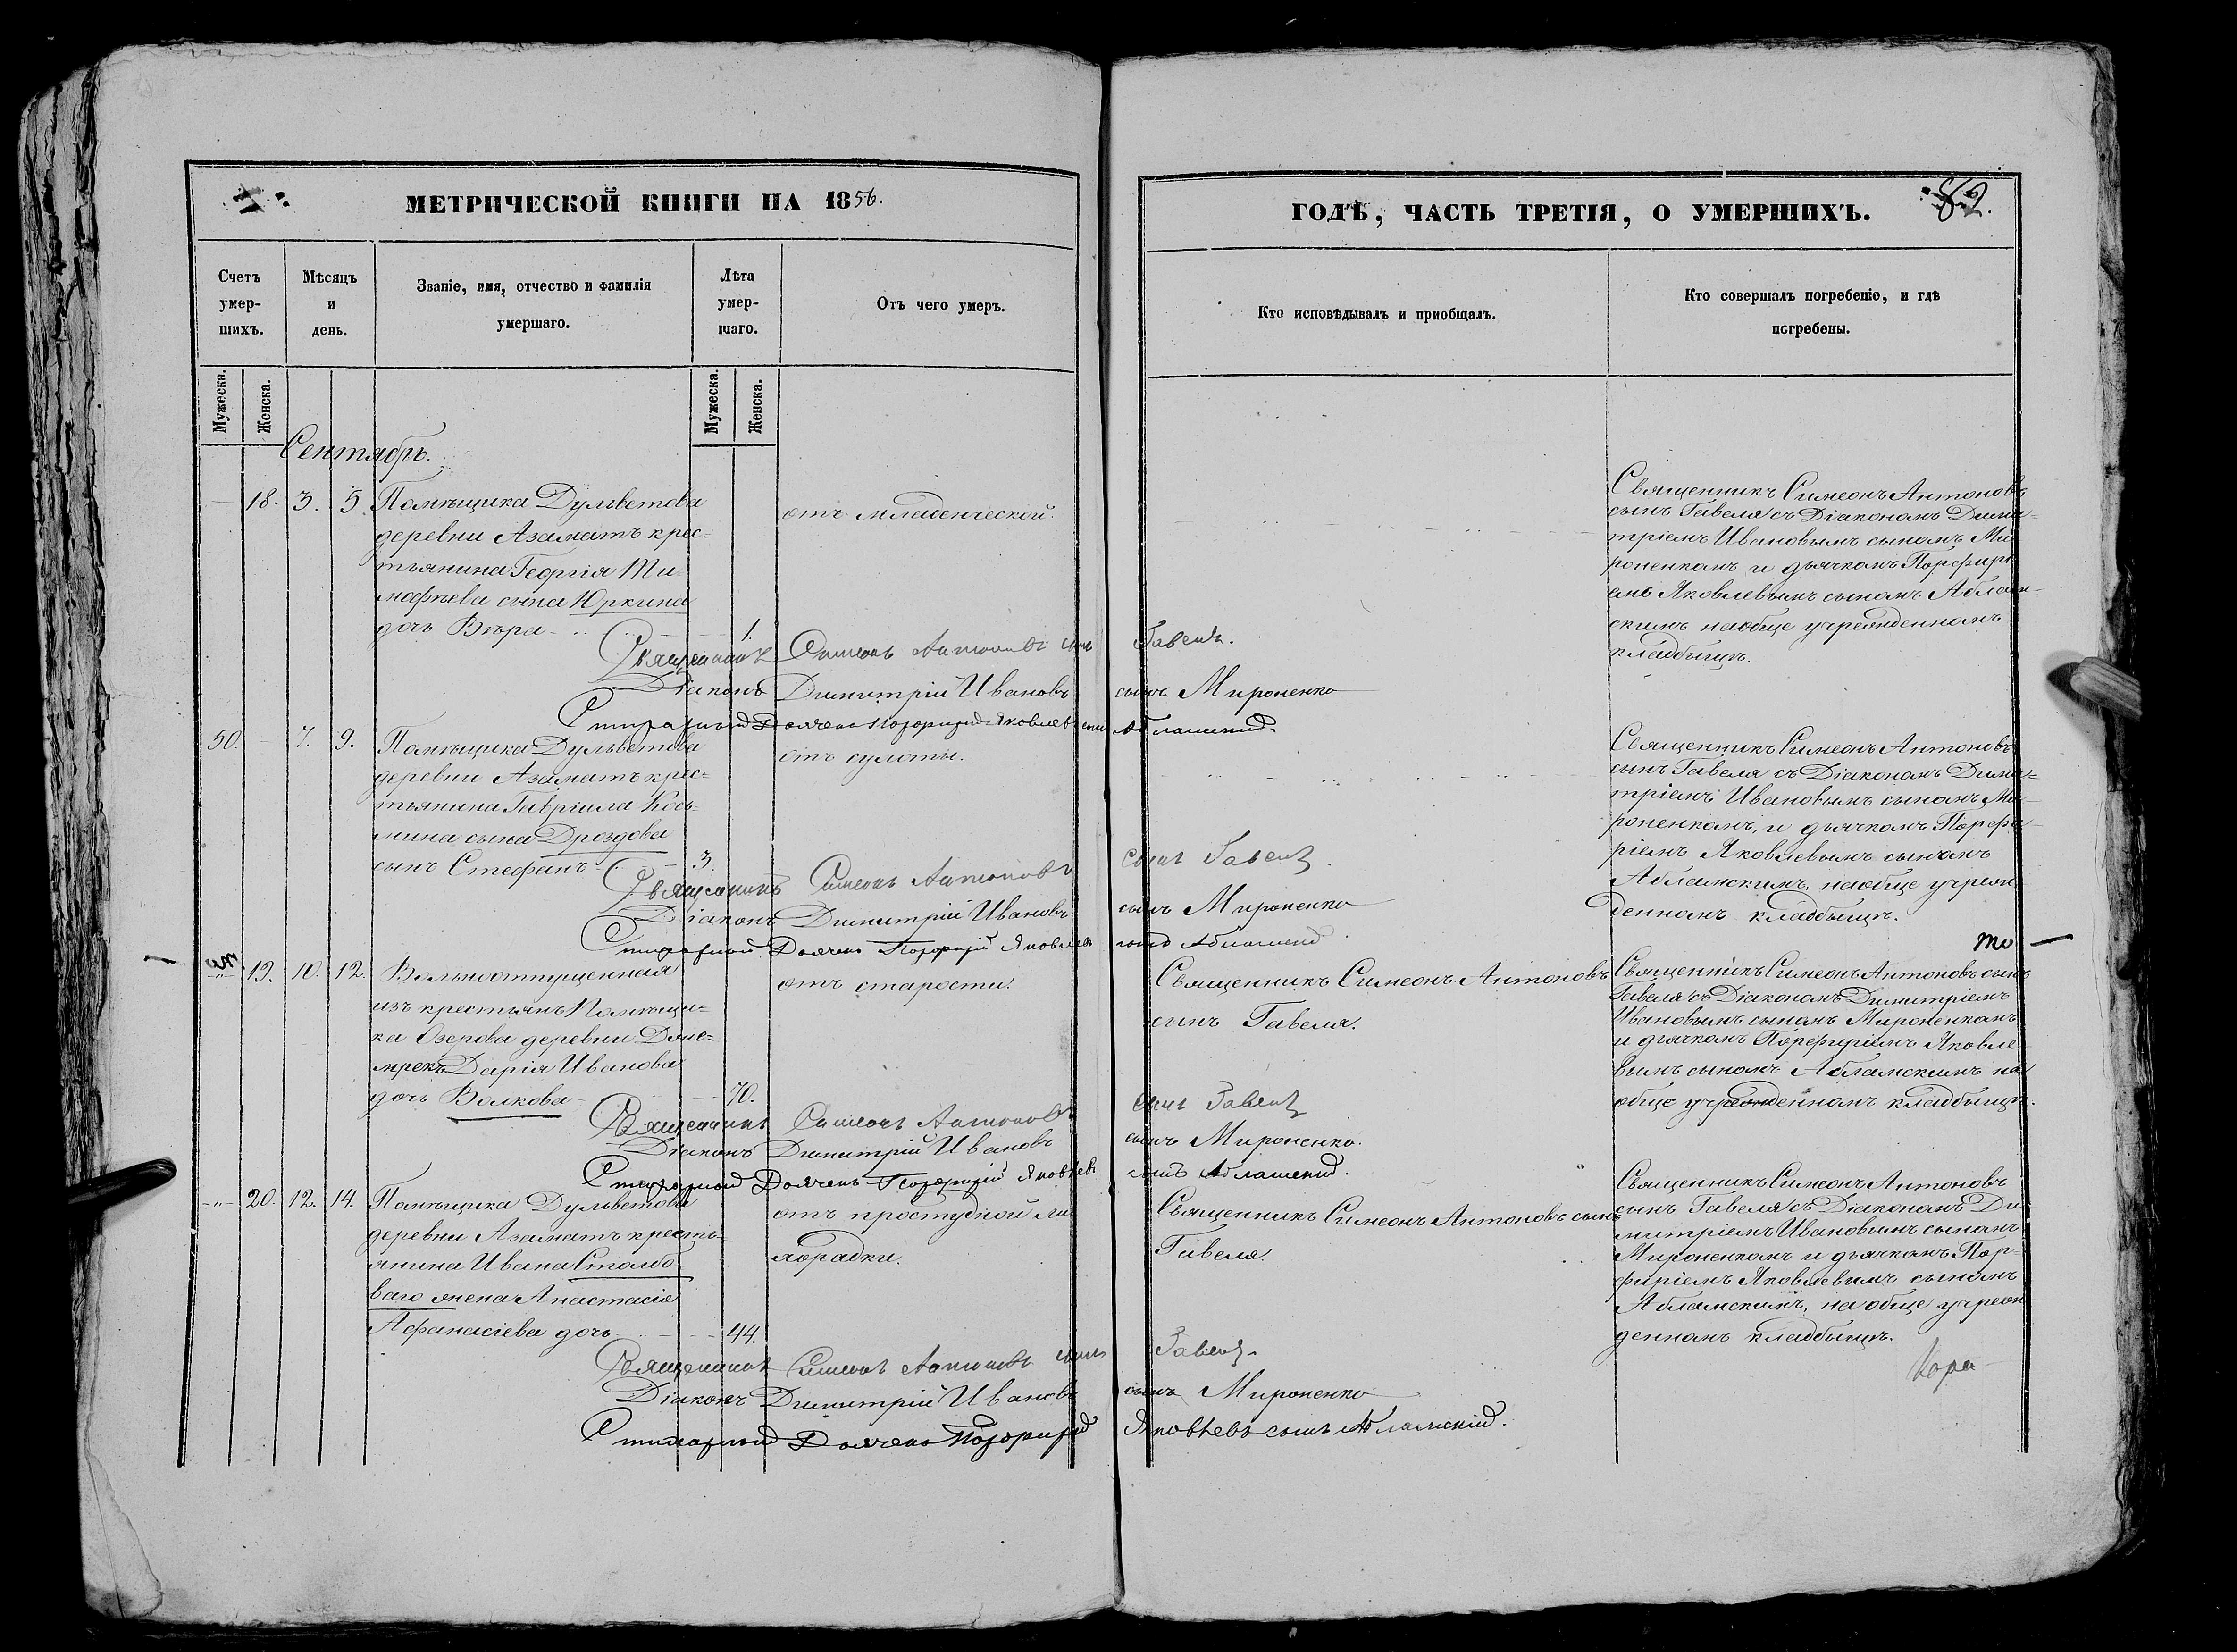 МЕТРИЧЕСКОЙ КНИГИ НА 1856.
Счетъ умер-шихъ.
Мѣсяцъ и день.
Званіе, имя, отчество и фамилія умершаго.
Лѣта умер-шаго.
Отъ чего умеръ.
Мужеска.
Женска.
Мужеска.
Женска.
Сентябрь.
18. 3. 5.
Помѣщика Дульветова
деревни Азаматъ крес=
тьянина Георгія Ти
мофѣева сына Юркина
дочь Вѣра 1.
отъ младенческой.
Священникъ Симеонъ Антоновъ сынъ Гавеля.
Діаконъ Димитрій Ивановъ сынъ Мироненко
Стихарный Дьячекъ Порфирій Яковлевъ сынъ Абламский.
50. 7. 9.
Помѣщика Дульветова
деревни Азаматъ крес=
тьянина Гавріила Кось
мина сына Дроздова
сынъ Стефанъ 3.
отъ сухоты.
Священникъ Симеонъ Антоновъ сынъ Гавеля.
Діаконъ Димитрій Ивановъ сынъ Мироненко
Стихарный Дьячекъ Порфирій Яковлев сынъ Абламский
19. 10. 12.
Вольноотпущенная
изъ крестьянъ Помѣщи=
ка Озерова деревни
Дарія Иванова
дочь Волкова 70.
отъ старости.
Священникъ Симеонъ Антоновъ сынъ Гавеля
Діаконъ Димитрій Ивановъ сынъ Мироненко.
Стихарный Дьячекъ Порфирій Яковлев сынъ Абламский.
20. 12. 14.
Помѣщика Дульветова
деревни Азаматъ кресть=
янина Ивана Столбо
ваго жена Анастасія
Афанасіева дочь 44.
отъ простудной ли
хорадки.
Священникъ Симеонъ Антоновъ сынъ Гавеля.
Діаконъ Димитрій Ивановъ сынъ Мироненко
Стихарный Дьячекъ Порфирій Яковлевъ сынъ Абламскій.
ГОДЪ, ЧАСТЬ ТРЕТІЯ, О УМЕРШИХЪ.
Кто исповѣдывалъ и пріобщалъ.
Кто совершалъ погребеніе, и гдѣ погребены.
Священникъ Симеонъ Антоновъ
сынъ Гавеля съ Діакономъ Дими=
тріемъ Ивановымъ сыномъ Ми
роненкомъ и дьячкомъ Порфирі
емъ Яковлевымъ сыномъ Аблам-
скимъ на обще учрежденномъ
кладбищѣ.
Священникъ Симеонъ Антоновъ
сынъ Гавеля съ Діакономъ Дими=
тріемъ Ивановымъ сыномъ Ми
роненкомъ, и дьячкомъ Порфи
ріемъ Яковлевымъ сыномъ
Абламскимъ, на обще учреж
денномъ кладбищѣ.
Священникъ Симеонъ Антоновъ
сынъ Гавеля.
Священникъ Симеонъ Антоновъ сынъ
Гавеля съ Діакономъ Димитріемъ
Ивановымъ сыномъ Мироненкомъ
и дьячкомъ Порфиріемъ Яковле
вымъ сыномъ Абламскимъ на
обще учрежденномъ кладбищѣ.
Священникъ Симеонъ Антоновъ сынъ
Гавеля.
Священникъ Симеонъ Антоновъ
сынъ Гавеля съ Діакономъ Ди
митріемъ Ивановымъ сыномъ
Мироненкомъ и дьячкомъ Пор=
фиріемъ Яковлевымъ сыномъ
Абламскимъ, на обще учреж
денномъ кладбищѣ.